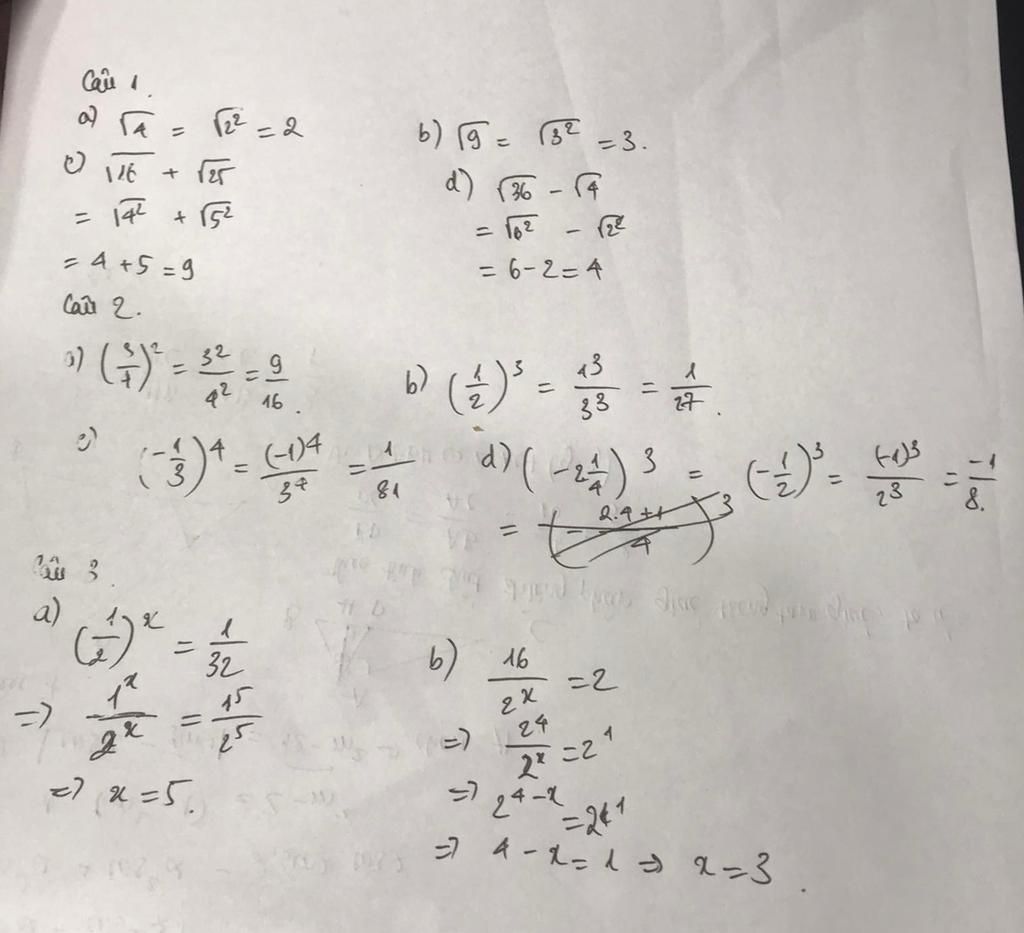 Câu 1.
a) √4 = √2² = 2
b) √9 = √3² = 3.
c) √16 + √25
= √4² + √5²
= 4 + 5 = 9
d) √36 - √4
= √6² - √2²
= 6 - 2 = 4
Câu 2.
a) (3/4)² = 3²/4² = 9/16.
b) (1/2)³ = 1³/3³ = 1/27.
c) (-1/3)⁴ = (-1)⁴/3⁴ = 1/81
d) (-2 1/4)³ = (-1/2)³ = (-1)³/2³ = -1/8.
= (-(2.4+1)/4)³
Câu 3.
a) (1/2)ˣ = 1/32
=> 1ˣ/2ˣ = 1⁵/2⁵
=> x = 5.
b) 16/2ˣ = 2
=> 2⁴/2ˣ = 2¹
=> 2⁴⁻ˣ = 2¹
=> 4 - x = 1 => x = 3.